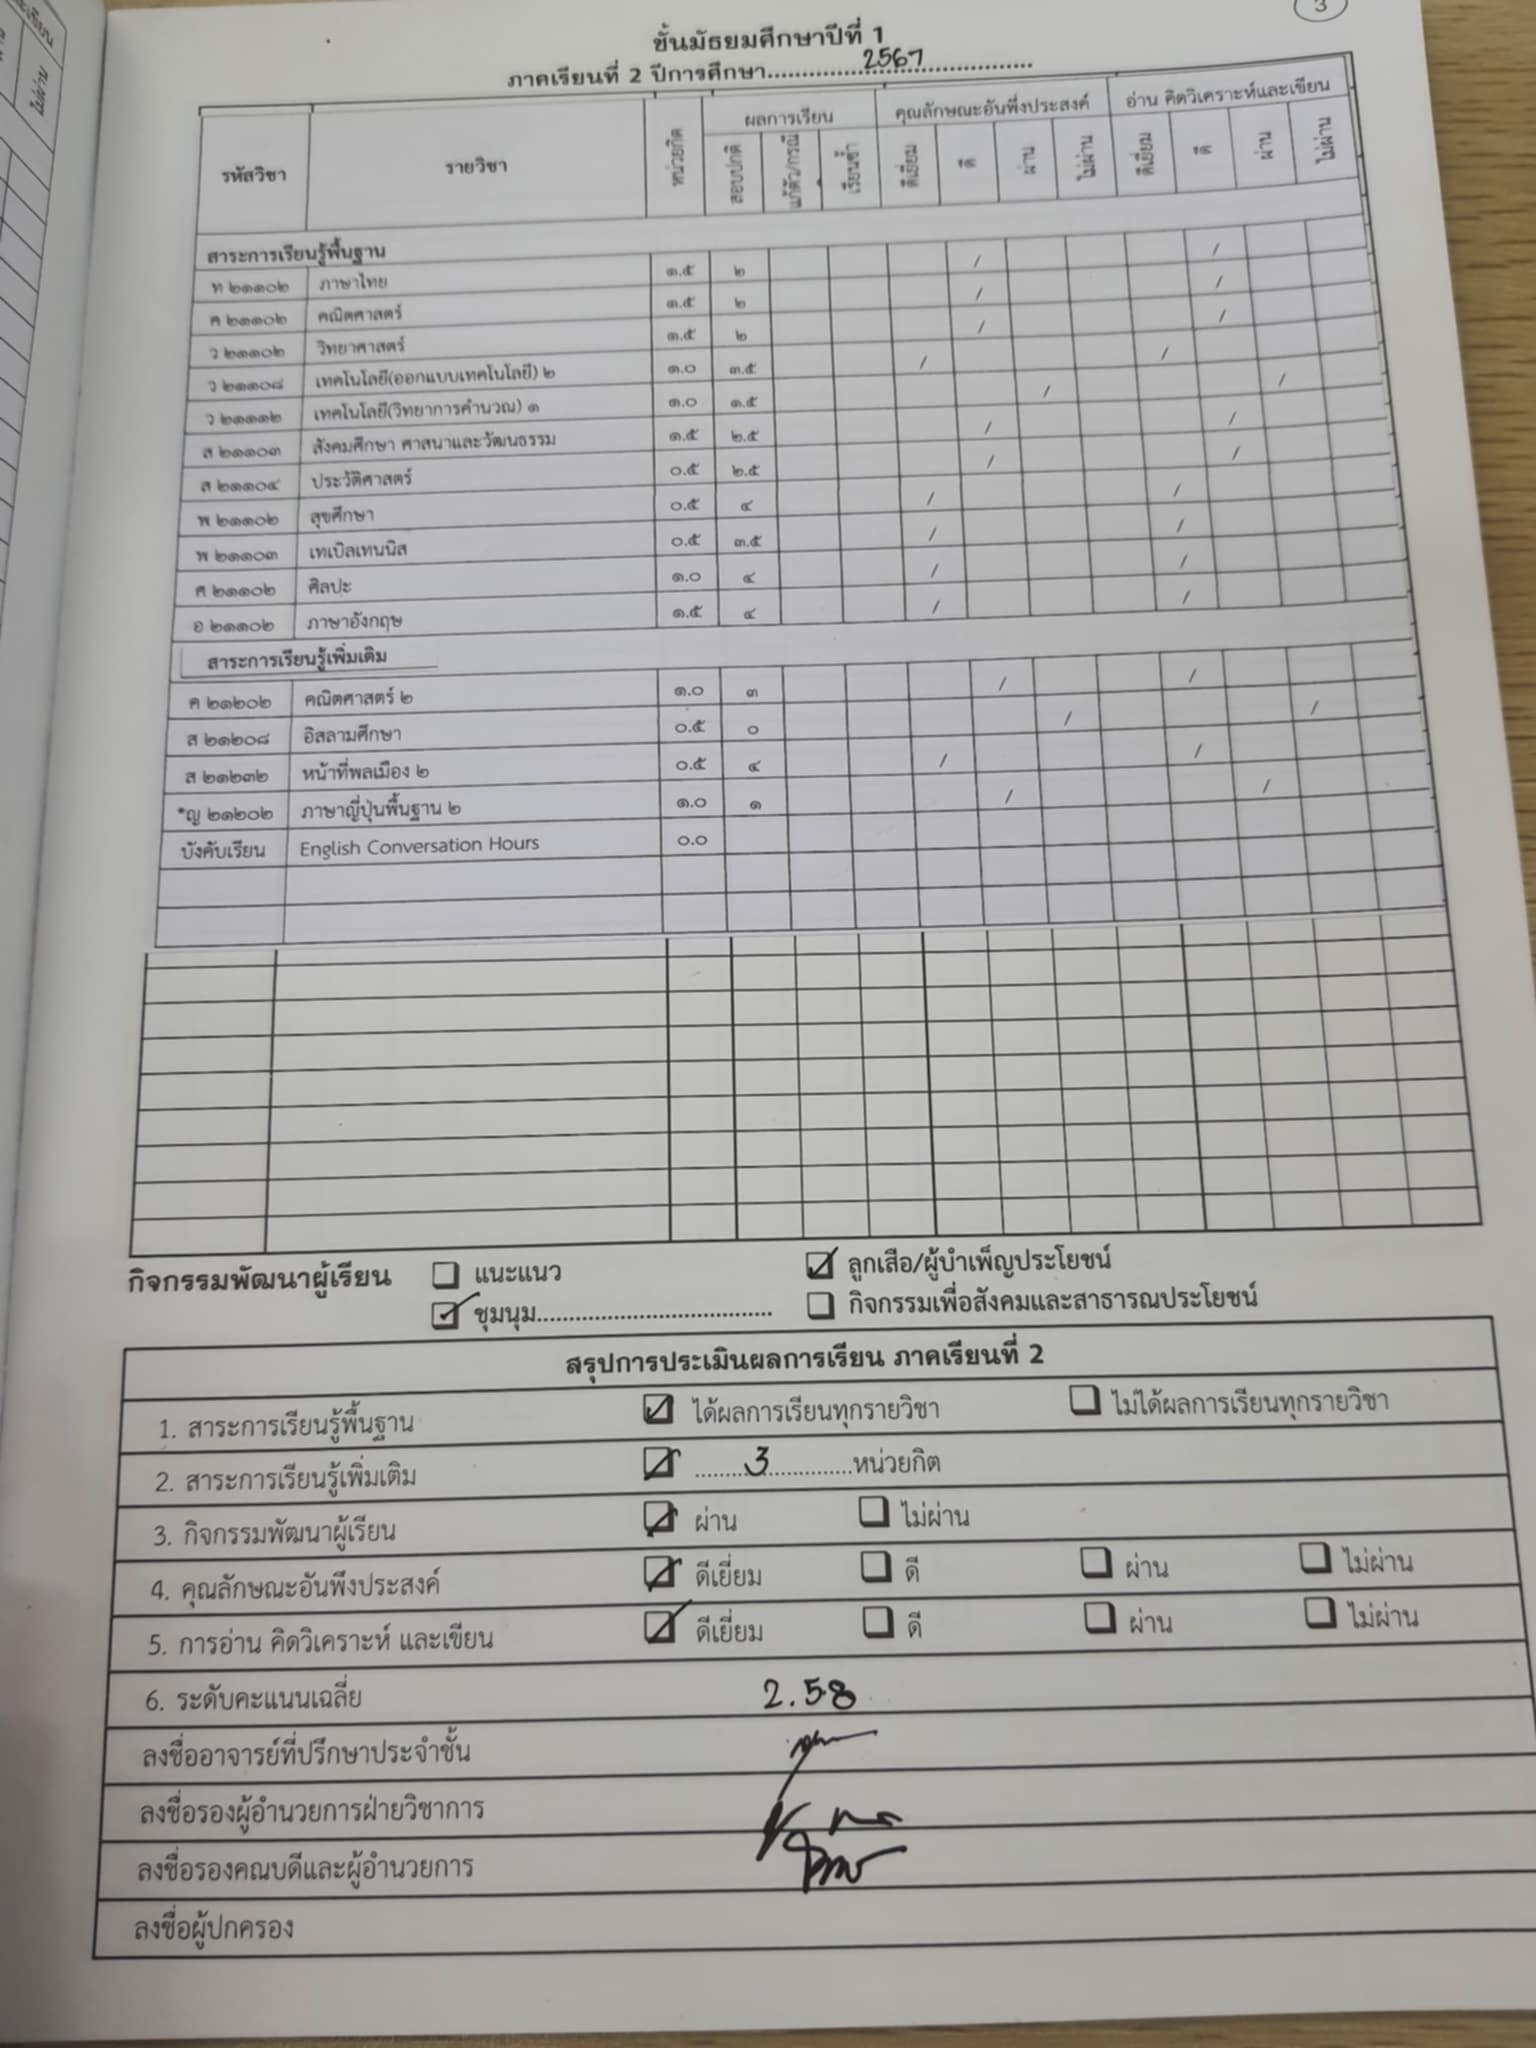 3
ชั้นมัธยมศึกษาปีที่ 1
ภาคเรียนที่ 2 ปีการศึกษา..........2567..........
รหัสวิชา รายวิชา หน่วยกิต ผลการเรียน คุณลักษณะอันพึงประสงค์ อ่าน คิดวิเคราะห์และเขียน
สอบปกติ แก้ตัว/กรณี เรียนซ้ำ ดีเยี่ยม ดี ผ่าน ไม่ผ่าน ดีเยี่ยม ดี ผ่าน ไม่ผ่าน
สาระการเรียนรู้พื้นฐาน
ท ๒๑๑๐๒ ภาษาไทย ๑.๕ ๒ / /
ค ๒๑๑๐๒ คณิตศาสตร์ ๑.๕ ๒ / /
ว ๒๑๑๐๒ วิทยาศาสตร์ ๑.๕ ๒ / /
ว ๒๑๑๐๘ เทคโนโลยี(ออกแบบเทคโนโลยี) ๒ ๑.๐ ๓.๕ / /
ว ๒๑๑๑๒ เทคโนโลยี(วิทยาการคำนวณ) ๑ ๑.๐ ๑.๕ / /
ส ๒๑๑๐๓ สังคมศึกษา ศาสนาและวัฒนธรรม ๑.๕ ๒.๕ / /
ส ๒๑๑๐๔ ประวัติศาสตร์ ๐.๕ ๒.๕ / /
พ ๒๑๑๐๒ สุขศึกษา ๐.๕ ๔ / /
พ ๒๑๑๐๓ เทเบิลเทนนิส ๐.๕ ๓.๕ / /
ศ ๒๑๑๐๒ ศิลปะ ๑.๐ ๔ / /
อ ๒๑๑๐๒ ภาษาอังกฤษ ๑.๕ ๔ / /
สาระการเรียนรู้เพิ่มเติม
ค ๒๑๒๐๒ คณิตศาสตร์ ๒ ๑.๐ ๓ / /
ส ๒๑๒๐๘ อิสลามศึกษา ๐.๕ ๐ / /
ส ๒๑๒๓๒ หน้าที่พลเมือง ๒ ๐.๕ ๔ / /
*ญ ๒๑๒๐๒ ภาษาญี่ปุ่นพื้นฐาน ๒ ๑.๐ ๑ / /
บังคับเรียน English Conversation Hours ๐.๐
กิจกรรมพัฒนาผู้เรียน แนะแนว ลูกเสือ/ผู้บำเพ็ญประโยชน์
ชุมนุม.................................... กิจกรรมเพื่อสังคมและสาธารณประโยชน์
สรุปการประเมินผลการเรียน ภาคเรียนที่ 2
1. สาระการเรียนรู้พื้นฐาน ได้ผลการเรียนทุกรายวิชา ไม่ได้ผลการเรียนทุกรายวิชา
2. สาระการเรียนรู้เพิ่มเติม ........3..........หน่วยกิต
3. กิจกรรมพัฒนาผู้เรียน ผ่าน ไม่ผ่าน
4. คุณลักษณะอันพึงประสงค์ ดีเยี่ยม ดี ผ่าน ไม่ผ่าน
5. การอ่าน คิดวิเคราะห์ และเขียน ดีเยี่ยม ดี ผ่าน ไม่ผ่าน
6. ระดับคะแนนเฉลี่ย 2.58
ลงชื่ออาจารย์ที่ปรึกษาประจำชั้น
ลงชื่อรองผู้อำนวยการฝ่ายวิชาการ
ลงชื่อรองคณบดีและผู้อำนวยการ
ลงชื่อผู้ปกครอง